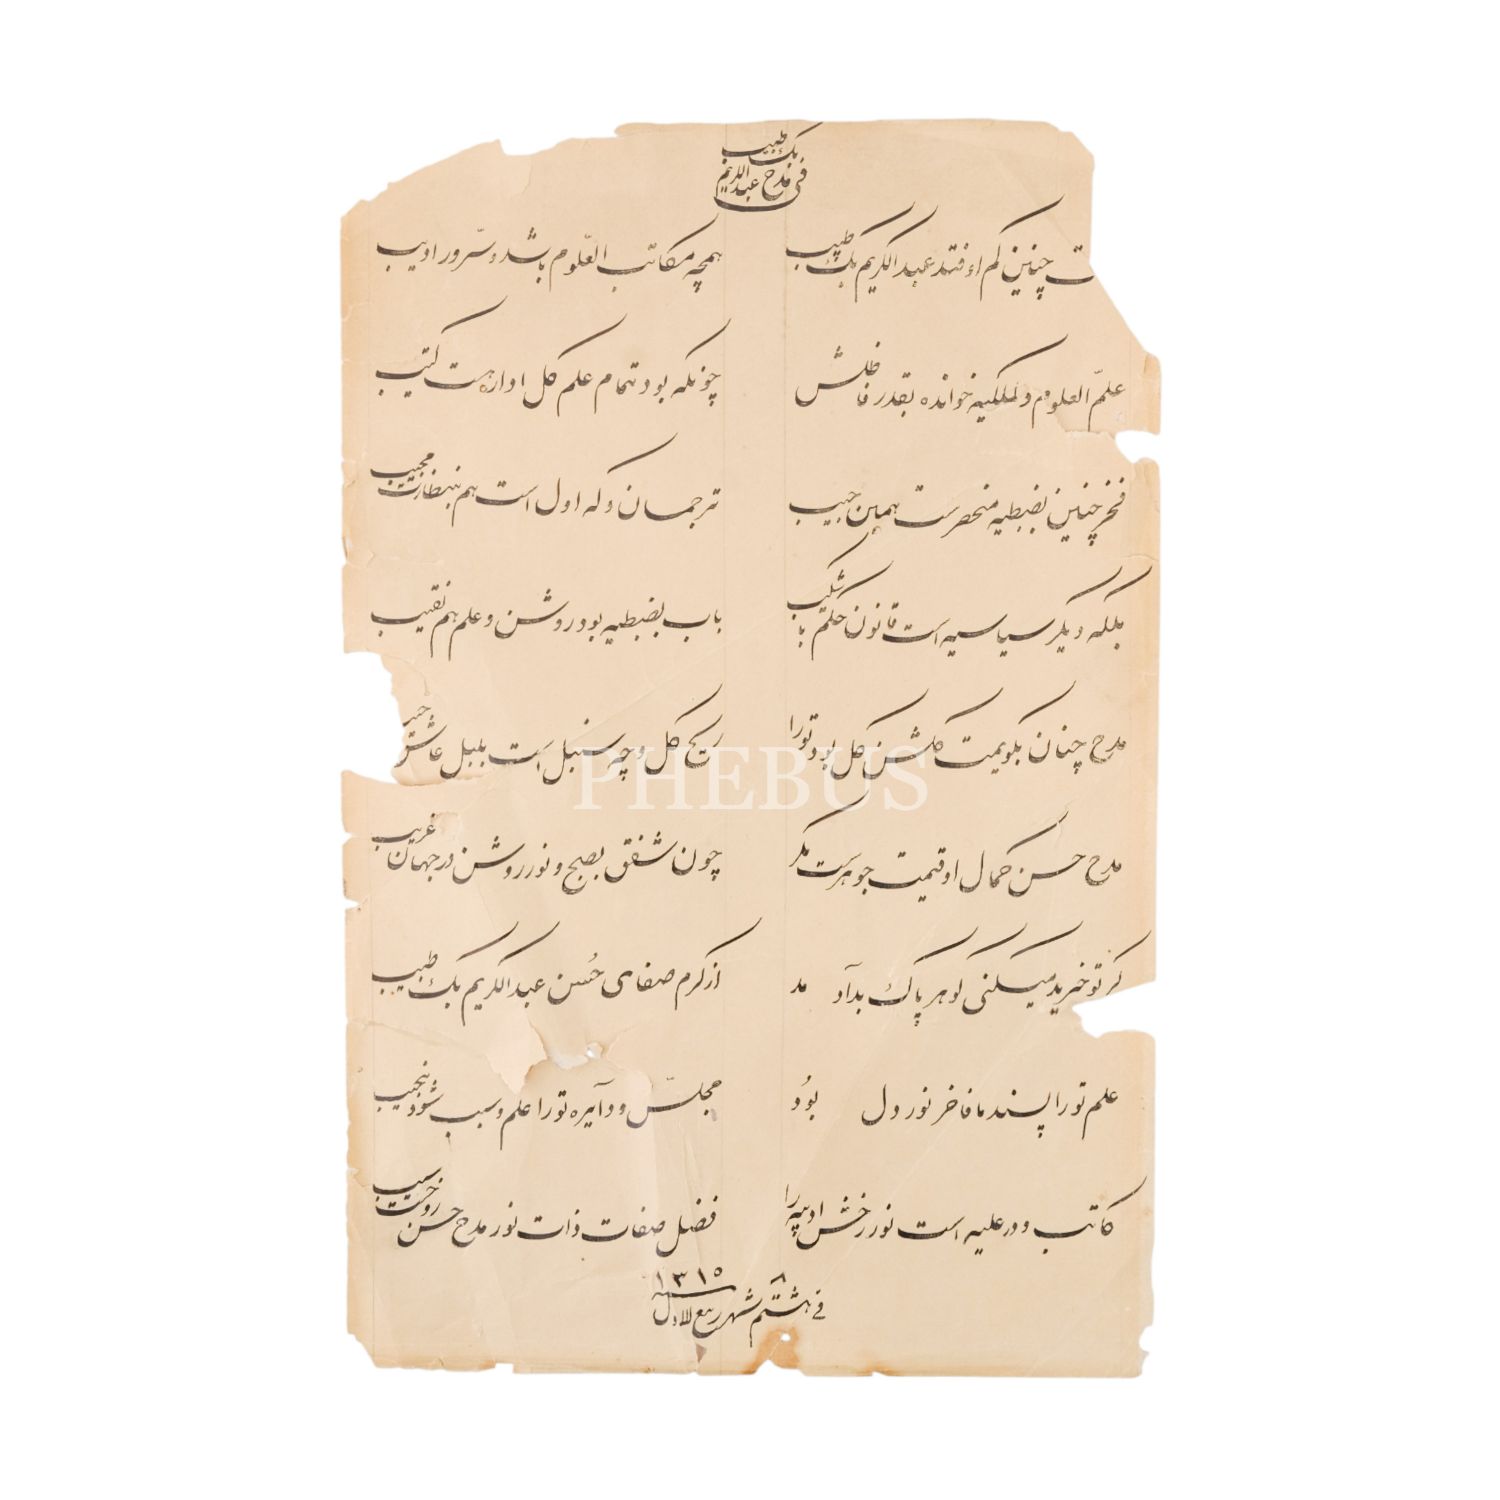 فی مدح عبدالکریم بک طبیب
ت چنین کم او فتد عبدالکریم بک طبیب همچه مکاتب العلوم باشد و سرور ادیب
علم العلوم و لملکیه خوانده بقدر فاضلش چونکه بود تمام علم کل اداره ست کتیب
فخر چنین بضبطیه منحصرست همین حبیب ترجمان وکه اول است هم بنظارت مجیب
بلکه دیگر سیاسیه است قانون حکم با شکیب باب بضبطیه بود روشن و علم هم نقیب
مدح چنان بگویمت گلشن گل بود تو را ریح گل و چه سنبل است بلبل عاشق
مدح حسن کمال او قیمت جوهرست مگر چون شفق بصبح و نور روشن در جهان غریب
گر تو خرید میکنی گوهر پاک بدآد مد از کرم صفای حُسن عبدالکریم بک طبیب
علم تو را پسند ما فاخر نور دل بُود مجلس و دآیره تو را علم و سبب شود نجیب
کاتب و در علیه است نور رخش ادیبه را فضل صفات ذات نور مدح حسن
فی هشتم ٨ شهر ربیع الاول سنه ١٣١٥
PHEBUS